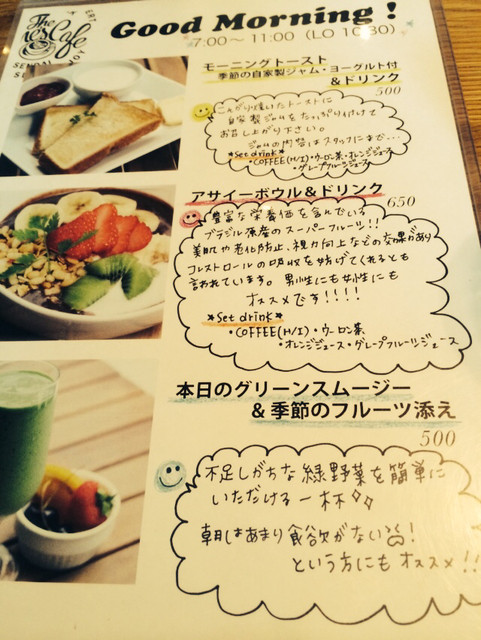 The
Cafe
Good Morning !
7:00〜11:00 (LO 10:30)
モーニングトースト
季節の自家製ジャム・ヨーグルト付
&ドリンク
500
こんがり焼いたトーストに
自家製ジャムをたっぷり付けて
お召し上がり下さい。
ジャムの内容はスタッフにまで...
*Set drink*
・COFFEE(H/I)・ウーロン茶・オレンジジュース
・グレープフルーツジュース
アサイーボウル&ドリンク
650
豊富な栄養価を含んでいる
ブラジル原産のスーパーフルーツ!!
美肌や老化防止、視力向上などの効果があり
コレストロールの吸収を妨げてくれるとも
言われています。男性にも女性にも
オススメです!!!!
*Set drink*
・COFFEE(H/I)・ウーロン茶
・オレンジジュース・グレープフルーツジュース
本日のグリーンスムージー
&季節のフルーツ添え
500
不足しがちな緑野菜を簡単に
いただける一杯
朝はあまり食欲がない!
という方にもオススメ!!